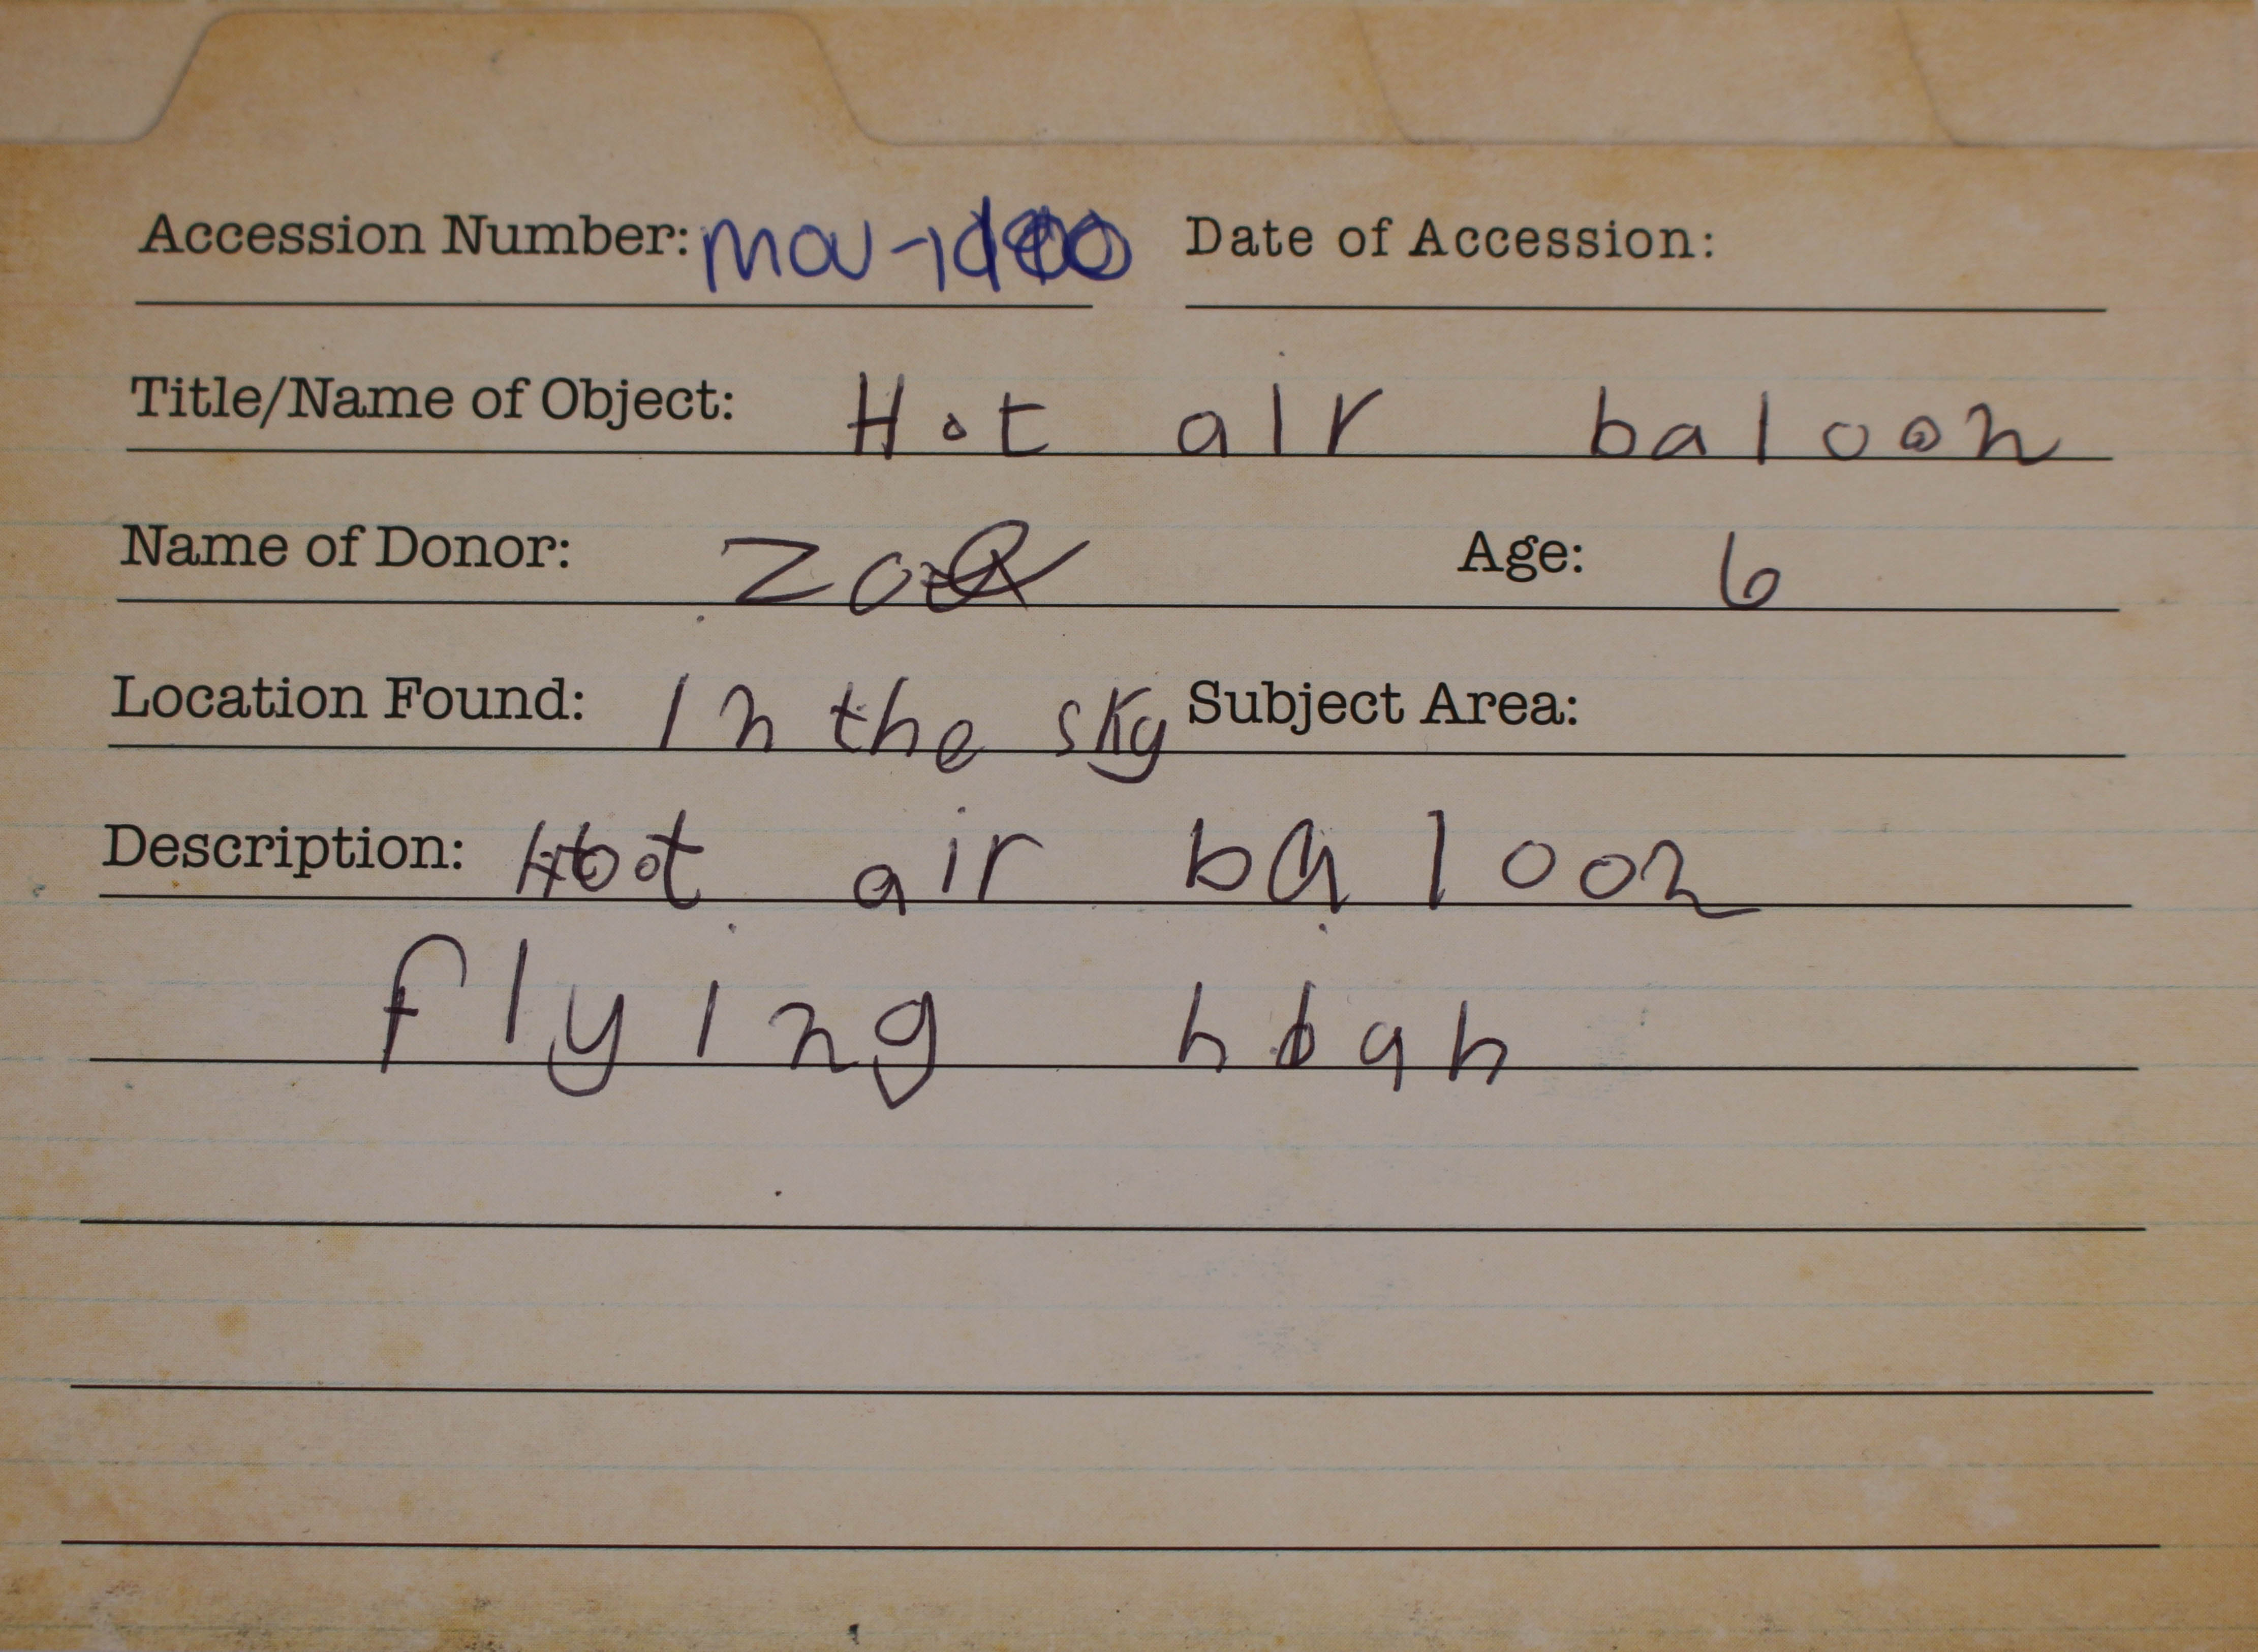 Accession Number: Date of Accession:
Title/Name of Object: Hot air baloon
Name of Donor: Zoe Age: 6
Location Found: In the sky Subject Area:
Description: Hoot air baloon
flying